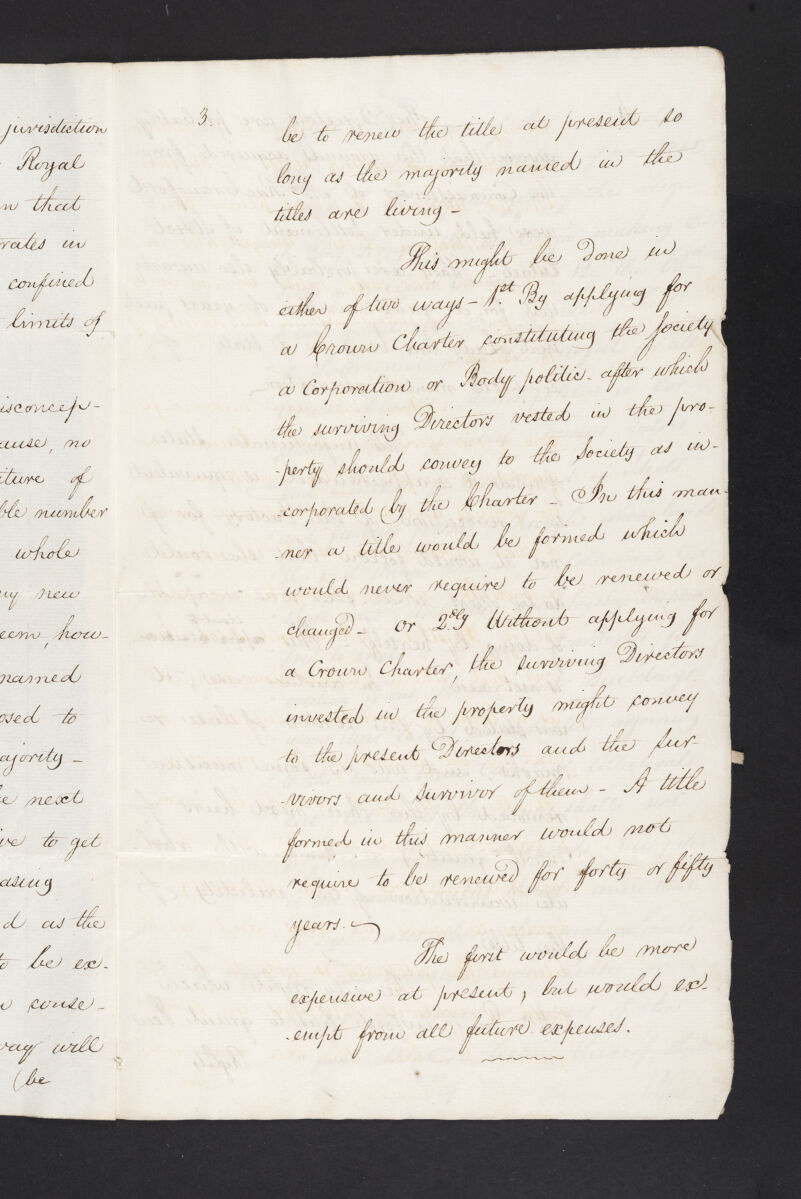 jurisdiction
Royal
that
rates in
confined
limits of
isconcep-
ause, no
iture of
ble number
whole
ny new
eem, how-
named
osed to
ajority -
next
ve to get
asing
d as the
to be ex-
conse-
way will
(be
3.
be to renew the title at present so
long as the majority named in the
titles are living -
This might be done in
either of two ways - 1st. By applying for
a Crown Charter constituting the Society
a Corporation or Body politic - after which
the surviving Directors vested in the pro-
-perty should convey to the Society as in-
-corporated by the Charter - In this man-
-ner a title would be formed which
would never require to be renewed or
changed - or 2dly Without applying for
a Crown Charter, the surviving Directors
invested in the property might convey
to the present Directors and the sur-
-vivors and survivor of them - A title
formed in this manner would not
require to be renewed for forty or fifty
years. -
The first would be more
expensive at present, but would ex-
-empt from all future expenses.